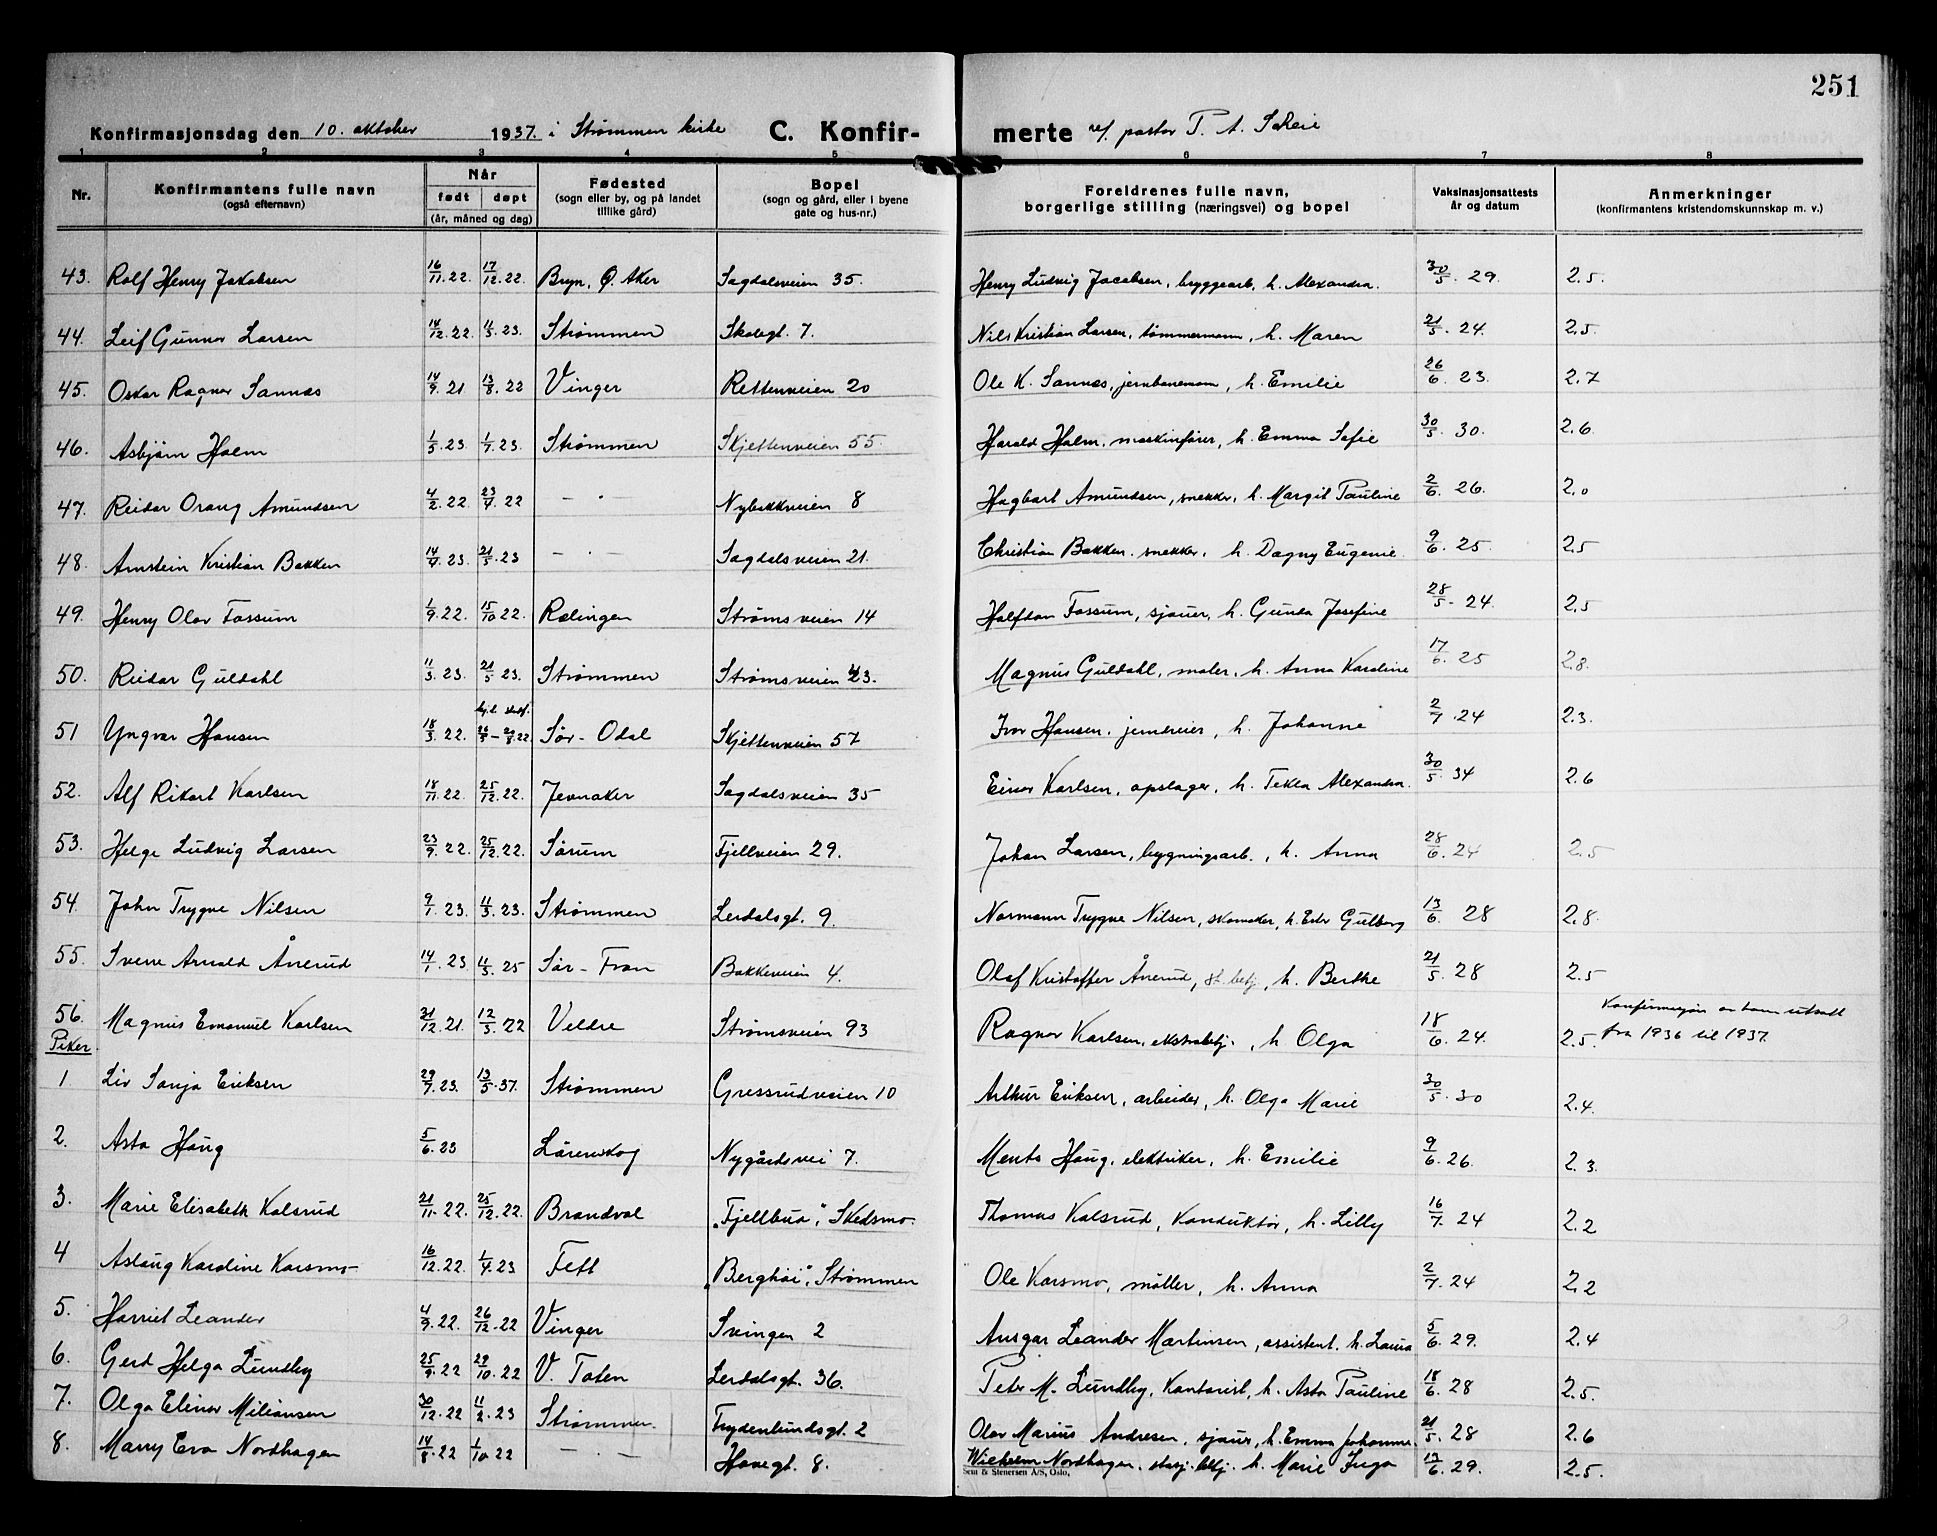 251
Konfirmasjonsdag den 10. oktober 1937. i Strømmen kirke C. Konfir- merte v/ pastor T. A.
1 2 3 4 5 6 7 8
Nr. Konfirmantens fulle navn (også efternavn) Når født døpt (år, måned og dag) Fødested (sogn eller by, og på landet tillike gård) Bopel (sogn og gård, eller i byene gate og hus-nr.) Foreldrenes fulle navn, borgerlige stilling (næringsvei) og bopel Vaksinasjonsattests år og datum Anmerkninger (konfirmantens kristendomskunnskap m. v.)
43. Rolf Henry Jakobsen 16/11.22. 17/12.22. Bryn, Ø. Aker Sagdalsveien 35. Henry Ludvig Jacobsen, bryggearb. h. Alexandra. 30/5. 29. 2.5.
44. Leif Gunnar Larsen 14/12.22. 11/3.23. Strømmen Skolegt. 7. Nils Kristian Larsen, tømmermann, h. Maren 21/5. 24. 2.5.
45. Oskar Ragnar Sannæs 14/9.21 13/8.22 Vinger Rettenveien 20 Ole K. Sannæs, jernbanemann, h. Emilie 26/6. 23. 2.7
46. Asbjørn Holm 1/5.23. 1/7.23. Strømmen Skjettenveien 55. Harald Holm, maskinfører, h. Emma Sofie 30/5. 30. 2.6.
47. Reidar Orang Amundsen 4/2.22. 23/4.22 — " — Nybakkveien 8 Hagbart Amundsen, snekker, h. Margit Pauline 2/6. 26. 2.0
48. Arnstein Kristian Bakken 14/4.23. 21/5.23 — " — Sagdalsveien 21. Christian Bakken, snekker, h. Dagny Eugenie. 9/6. 25. 2.5
49. Henry Olav Fossum 1/9.22. 15/10.22. Rælingen Strømsveien 14 Halfdan Fossum, sjauer, h. Gunda Josefine 28/5. 24. 2.5
50. Reidar Guldahl 11/3.23. 21/5.23. Strømmen Strømsveien 43. Magnus Guldahl, maler, h. Anna Karoline 17/6. 25 2.8.
51 Yngvar Hansen 18/3.22. hj.d. stadf. 26/3 — 27/8.22. Sør-Odal Skjettenveien 57 Ivar Hansen, jerndreier, h. Johanne 2/7. 24 2.3.
52. Alf Rikart Karlsen 18/11.22. 25/12.22. Jevnaker Sagdalsveien 35 Einar Karlsen, opslager, h. Tekla Alexandra. 30/5. 34 2.6
53. Helge Ludvig Larsen 23/9.22. 25/12.22. Sørum Fjellveien 29. Johan Larsen, bygningsarb., h. Anna 28/6. 24 2.5
54. John Trygve Nilsen 9/1.23. 11/3.23. Strømmen Lerdalsgt. 9. Normann Trygve Nilsen, skomaker, h. Gulborg 13/6. 28 2.8.
55. Svein Arnold Ånerud 14/1.23 11/3.25 Sør-Fron Bakkeveien 4. Olaf Kristoffer Ånerud, st. betj., h. Berthe 21/5. 28 2.5
56. Magnus Emanuel Karlsen 31/12.21. 12/3.22 Veldre Strømsveien 93 Ragnar Karlsen, ekstrabetj., h. Olga 18/6. 24. 2.5. Konfirmasjon av ham utsatt fra 1936 til 1937.
Piker
1. Liv Sonja Eriksen 29/7.23. 13/5.37. Strømmen Gressrudveien 10 Arthur Eriksen, arbeider, h. Olga Marie 30/5. 30 2.4.
2. Asta Haug 5/6.23 Lørenskog Nygårdsvei 7. Mentz Haug, elektriker, h. Emilie 9/6. 26. 2.3.
3. Marie Elisabeth Kalsrud 21/11.22. 25/12.22. Brandval "Fjellbua", Skedsmo. Thomas Kalsrud, Konduktør, h. Lilly 16/7. 24 2.2
4 Aslaug Karoline Karsmo 16/12.22. 1/4.23 Fett "Berghøi", Strømmen Ole Karsmo, møller, h. Anna 2/7. 24 2.2
5. Harriet Leander 4/9.22. 26/12.22 Vinger Svingen 2 Ansgar Leander Martinsen, assistent, h. Laura 5/6. 29. 2.4
6. Gerd Helga Lundby 25/9.22 29/10.22 V. Toten Lerdalsgt. 36. Peter M. Lundby, Kontorist, h. Asta Pauline 18/6. 28 2.5.
7. Olga Elinor Miliansen 30/12.22 11/2.23 Strømmen. Frydenlundsgt. 2 Olav Marius Andresen, sjauer, h. Emma Johanne. 21/5. 28 2.6
8. Marry Eva Nordhagen 14/8.22 1/10.22 — " — Havegt. 8. Wilhelm Nordhagen, stasj. betj. h. Marie Inga 12/6. 29. 2.5.
Sem & Stenersen A/S, Oslo.